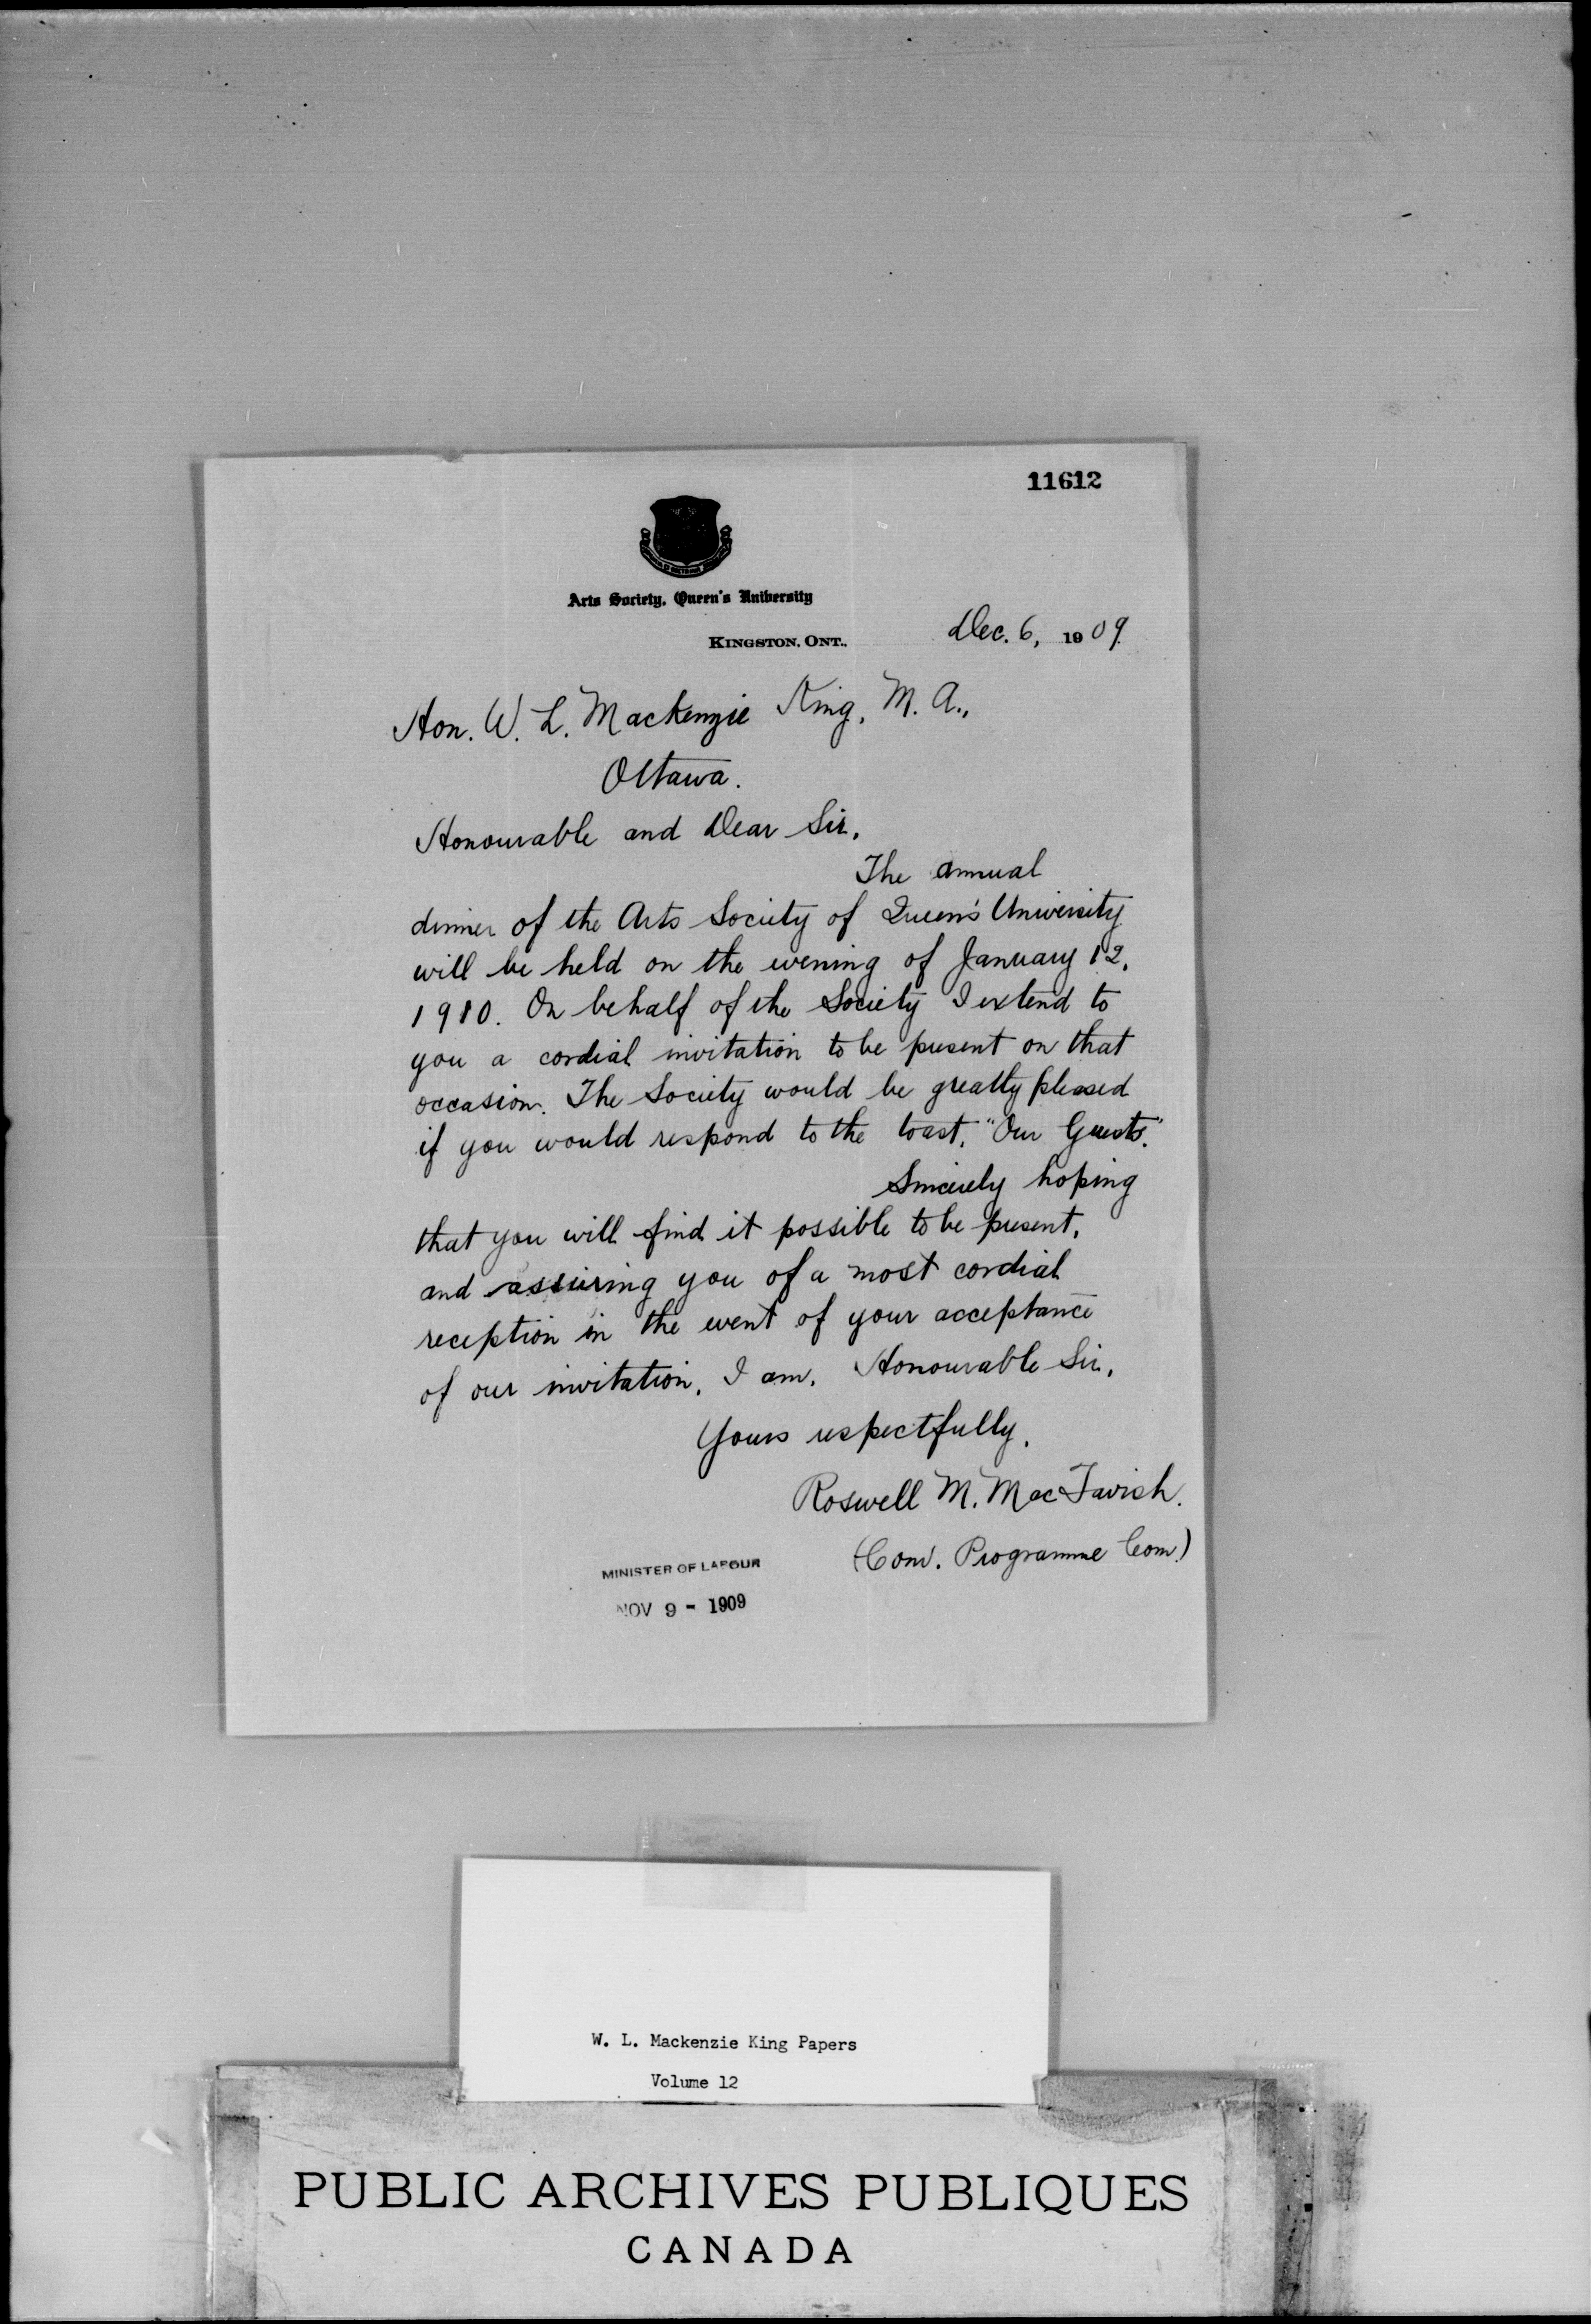 11612
Arts Society, Queen's University
KINGSTON, ONT., Dec. 6, 1909.
Hon. W. L. Mackenzie King, M. A.,
Ottawa.
Honourable and Dear Sir,
The annual
dinner of the Arts Society of Queen's University
will be held on the evening of January 12,
1910. On behalf of the Society I extend to
you a cordial invitation to be present on that
occasion. The Society would be greatly pleased
if you would respond to the toast, "Our Guests."
Sincerely hoping
that you will find it possible to be present,
and assuring you of a most cordial
reception in the event of your acceptance
of our invitation, I am, Honourable Sir,
Yours respectfully,
Roswell M. MacTavish.
(Conv. Programme Com.)
MINISTER OF LABOUR
NOV 9 - 1909
W. L. Mackenzie King Papers
Volume 12
PUBLIC ARCHIVES PUBLIQUES
CANADA